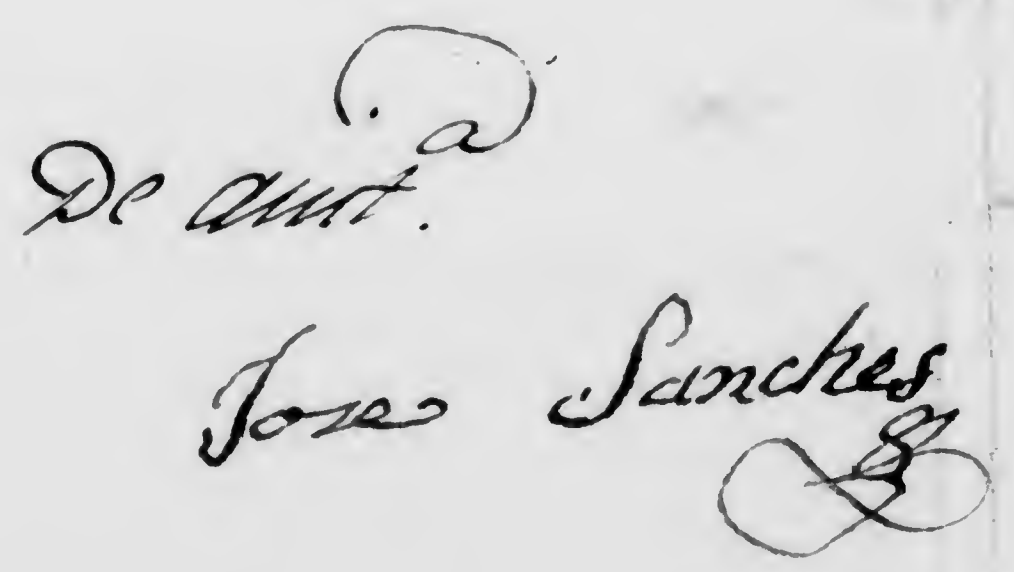 De Aunt.ᵃ
Joze Sanches